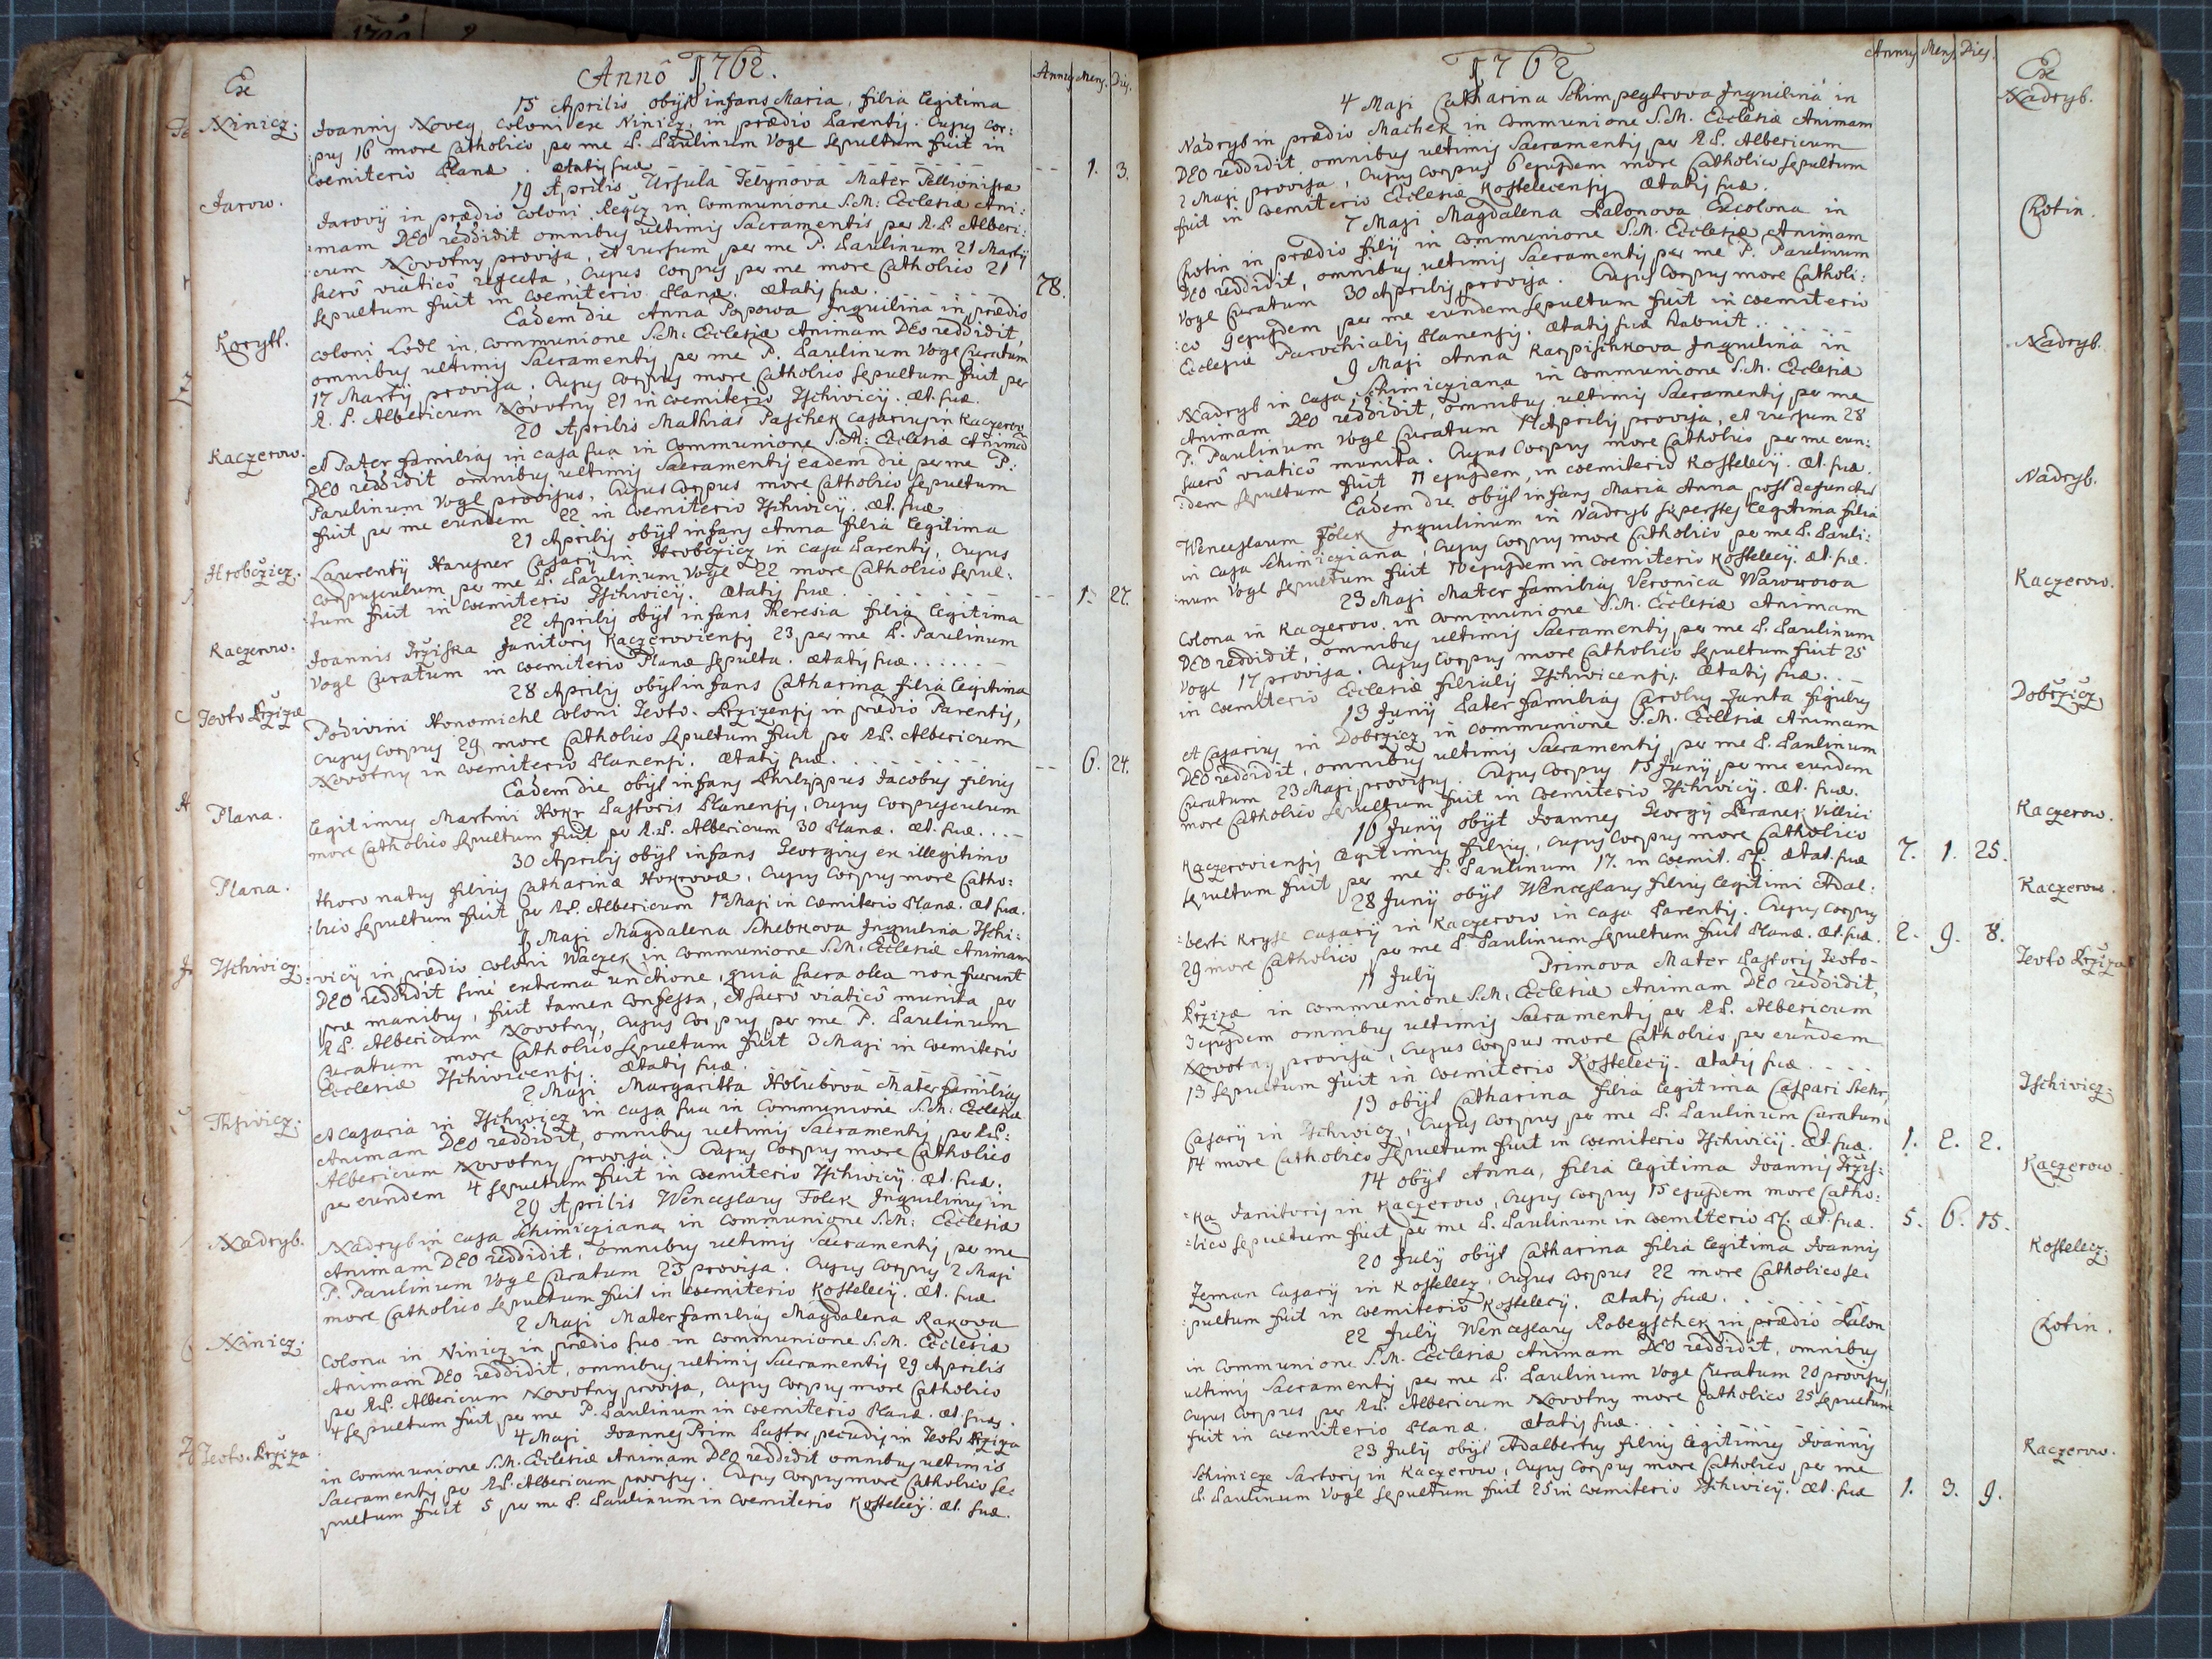 Annô 1762.
Ex
Annus Mens. Dies.
Ninicz.
15 Aprilis obijt infans Maria, filia legitima
Joannis Novey, coloni ex Ninicz, in prædio Parentis. Cujus cor:
:pus 16 more Catholico per me P. Paulinum Vogl sepultum fuit in
Coemiterio Planæ. Ætatis suæ -- 1. 3.
Jarow.
19 Aprilis Ursula Mater
Jarovÿ in prædio Coloni in Communione S.M: Ecclesiæ Ani:
:mam DEO reddidit omnibus ultimis Sacramentis per R.P. Alberi:
:cum Novotny provisa, et rursum per me P. Paulinum 21 Martÿ
sacrô viaticô refecta, Cujus corpus per me more Catholico 21
sepultum fuit in Coemiterio Planæ. Ætatis suæ. 78.
Korytt.
Eadem die Anna Popowa Inquilina in prædio
coloni Lodl in Communione S.M: Ecclesiæ Animam DEO reddidit,
omnibus ultimis Sacramentis per me P. Paulinum Vogl Curatum
17 Martÿ provisa. Cujus Corpus more Catholico sepultum fuit per
R. P. Albericum Novotny 21 in Coemiterio Tschiwicÿ. Æt. suæ.
Kaczerow.
20 Aprilis Mathias Paschek casarius in Kaczerow
et Pater familias in casa sua in Communione S.M: Ecclesiæ Animam
DEO reddidit omnibus ultimis Sacramentis eadem die per me P:
Paulinum Vogl provisus, Cujus Corpus more Catholico sepultum
fuit per me eundem 22 in Coemiterio Tschiwicÿ. Æt. suæ
Hrobčzicz.
21 Aprilis obijt infans Anna filia legitima
Laurentÿ Hausner Casarÿ in Hrobčzicz in casa Parentis, Cujus
corpusculum per me P. Paulinum Vogl 22 more Catholico sepul:
:tum fuit in Coemiterio Tschiwicÿ. Ætatis suæ -- 1. 27.
Kaczerow.
22 Aprilis obijt infans Theresia filia legitima
Joannis Janitoris Kaczeroviensis 23 per me P. Paulinum
Vogl Curatum in Coemiterio Planæ sepulta. Ætatis suæ.......
28 Aprilis obijt infans Catharina filia legitima
Podivini Honomichl Coloni in prædio Parentis,
cujus Corpus 29 more Catholico sepultum fuit per R.P. Albericum
Novotny in Coemiterio Planensi. Ætatis suæ. -- 6. 24.
Plana.
Eadem die obijt infans Philippus Jacobus filius
legitimus Martini Hokr Pastoris Planensis, cujus Corpusculum
more Catholico sepultum fuit per R.P. Albericum 30 Planæ. Æt. suæ....
Plana.
30 Aprilis obijt infans Georgius ex illegitimo
thoro natus filius Catharinæ Hokrovæ, Cujus corpus more Catho:
:lico sepultum fuit per R.P. Albericum 1ma Maji in Coemiterio Planæ. Æt suæ.
Tschiwicz.
Maji Magdalena Schebkova Inquilina Tschi:
:vicÿ in prædio coloni Waczek in Communione S.M: Ecclesiæ Animam
DEO reddidit sine extrema unctione, quia sacra olea non fuerunt
præ manibus, fuit tamen confessa, et sacrô viaticô munita per
R.P. Albericum Novotny, Cujus Corpus per me P. Paulinum
Curatum more Catholico sepultum fuit 3 Maji in Coemiterio
Ecclesiæ Tschiwicensis. Ætatis suæ.
Tschwicz.
2 Maji Margaritta Holubova Mater familias
et Casaria in Tschiwicz in casa sua in Communione S.M: Ecclesiæ
Animam DEO reddidit, omnibus ultimis Sacramentis per R.P:
Albericum Novotny provisa. Cujus Corpus more Catholico
per eundem 4 sepultum fuit in Coemiterio Tschiwicÿ. Æt. suæ.
Nadryb.
29 Aprilis Wenceslaus Folek Inquilinus in
Nadryb in casa Schimicziana in communione S.M: Ecclesiæ
Animam DEO reddidit, omnibus ultimis Sacramentis per me
P. Paulinum Vogl Curatum 23 provisa. Cujus Corpus 2 Maji
more Catholico sepultum fuit in Coemiterio Kostelecÿ. Æt. suæ.
Ninicz.
2 Maji Mater familias Magdalena Rakova
Colona in Ninicz in prædio suo in communione S.M. Ecclesiæ
Animam DEO reddidit, omnibus ultimis Sacramentis 29 Aprilis
per R.P. Albericum Novotny provisa, Cujus Corpus more Catholico
4 sepultum fuit per me P. Paulinum in Coemiterio Planæ. Æt. suæ.
4 Maji Joannes Prim Pastor pecudis in
in communione S.M. Ecclesiæ Animam DEO reddidit omnibus ultimis
Sacramentis per R.P. Albericum provisus. Cujus Corpus more Catholico se:
pultum fuit 5 per me P. Paulinum in Coemiterio Kostelecÿ. Æt. suæ.
1762
Annus Mens. Dies.
Ex
Nadryb.
4 Maji Catharina Inquilina in
Nadryb in prædio Machek in Communione S.M. Ecclesiæ Animam
DEO reddidit omnibus ultimis Sacramentis per R.P. Albericum
2 Maji provisa, Cujus Corpus 6 ejusdem more Catholico sepultum
fuit in Coemiterio Ecclesiæ Kostelecensis Ætatis suæ.
Chotin.
7 Maji Magdalena Excolona in
Chotin in prædio filÿ in communione S.M. Ecclesiæ Animam
DEO reddidit, omnibus ultimis Sacramentis per me P. Paulinum
Vogl Curatum 30 Aprilis provisa. Cujus Corpus more Catholi:
:co 9 ejusdem per me eundem sepultum fuit in Coemiterio
Ecclesiæ Parochialis Planensis. Ætatis suæ habuit.....
Nadryb.
9 Maji Anna Karpischkova Inquilina in
Nadryb in casa Schimicziana in communione S.M. Ecclesiæ
Animam DEO reddidit, omnibus ultimis Sacramentis per me
P. Paulinum Vogl Curatum Aprilis provisa, et rursum 28
sacrô viaticô munita. Cujus Corpus more Catholico per me eun:
:dem sepultum fuit 11 ejusdem, in Coemiterio Kostelecÿ. Æt. suæ.
Nadryb.
Eadem die obijt infans Maria Anna post defunctum
Wenceslaum Folek Inquilinum in Nadryb superstes legitima filia
in casa Schimicziana, Cujus Corpus more Catholico per me P. Pauli:
:num Vogl sepultum fuit 10 ejusdem in Coemiterio Kostelecÿ. Æt. suæ.
Kaczerow.
23 Maji Mater familias Veronica
Colona in Kaczerow in communione S.M. Ecclesiæ Animam
DEO reddidit, omnibus ultimis Sacramentis per me P. Paulinum
Vogl 17 provisa. Cujus Corpus more Catholico sepultum fuit 25
in Coemiterio Ecclesiæ filialis Tschiwicensis. Ætatis suæ....
Dobřzicz
13 Junÿ Pater familias Carolus Janta figulus
et Casarius in Dobřzicz in communione S.M. Ecclesiæ Animam
DEO reddidit, omnibus ultimis Sacramentis per me P. Paulinum
Curatum 23 Maji provisus. Cujus Corpus 15 Junÿ per me eundem
more Catholico sepultum fuit in Coemiterio Tschiwicÿ. Æt. suæ.
Kaczerow.
16 Junÿ obijt Joannes Georgÿ Beranek Villici
Kaczeroviensis legitimus filius, cujus Corpus more Catholico
sepultum fuit per me P. Paulinum 17. in Coemit. Pl. Ætat. suæ 7. 1. 25.
Kaczerow.
28 Junÿ obijt Wenceslaus filius legitimi Adal:
:berti Kryse casarÿ in Kaczerow in casa Parentis. Cujus Corpus
29 more Catholico per me P. Paulinum sepultum fuit Planæ. Æt. suæ. 2. 9. 8.
11 July Primova Mater Pastoris
in communione S.M. Ecclesiæ Animam DEO reddidit,
3 ejusdem omnibus ultimis Sacramentis per R.P. Albericum
Novotny provisa, Cujus Corpus more Catholico per eundem
13 sepultum fuit in Coemiterio Kostelecÿ. Ætatis suæ....
Tschiwicz.
13 obijt Catharina filia legitima Caspari Stehr,
Casarÿ in Tschiwicz, Cujus Corpus per me P. Paulinum Curatum
14 more Catholico sepultum fuit in Coemiterio Tschiwicÿ. Æt. suæ. 1. 2. 2.
Kaczerow.
14 obijt Anna, filia legitima Joannis
:ka Janitoris in Kaczerow, Cujus Corpus 15 ejusdem more Catho:
:lico sepultum fuit per me P. Paulinum in Coemiterio Pl. Æt. suæ. 5. 6. 15.
Kostelecz.
20 July obijt Catharina filia legitima Joannis
Zeman Casarÿ in Kostelecz, Cujus Corpus 22 more Catholico se:
:pultum fuit in Coemiterio Kostelecÿ. Ætatis suæ.
Chotin.
22 July Wenceslaus Robeyschek in prædio
in Communione S.M. Ecclesiæ Animam DEO reddidit, omnibus
ultimis Sacramentis per me P. Paulinum Vogl Curatum 20 provisus,
Cujus Corpus per R.P. Albericum Novotny more Catholico 25 sepultum
fuit in Coemiterio Planæ. Ætatis suæ.
Kaczerow.
23 July obijt Adalbertus filius legitimus Joannis
Schimicze Sartoris in Kaczerow, Cujus Corpus more Catholico per me
P. Paulinum Vogl sepultum fuit 25 in Coemiterio Tschiwicÿ. Æt. suæ 1. 3. 9.